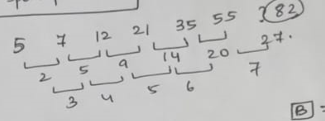 5 7 12 21 35 55 82
2 5 9 14 20 27.
3 4 5 6 7
B =